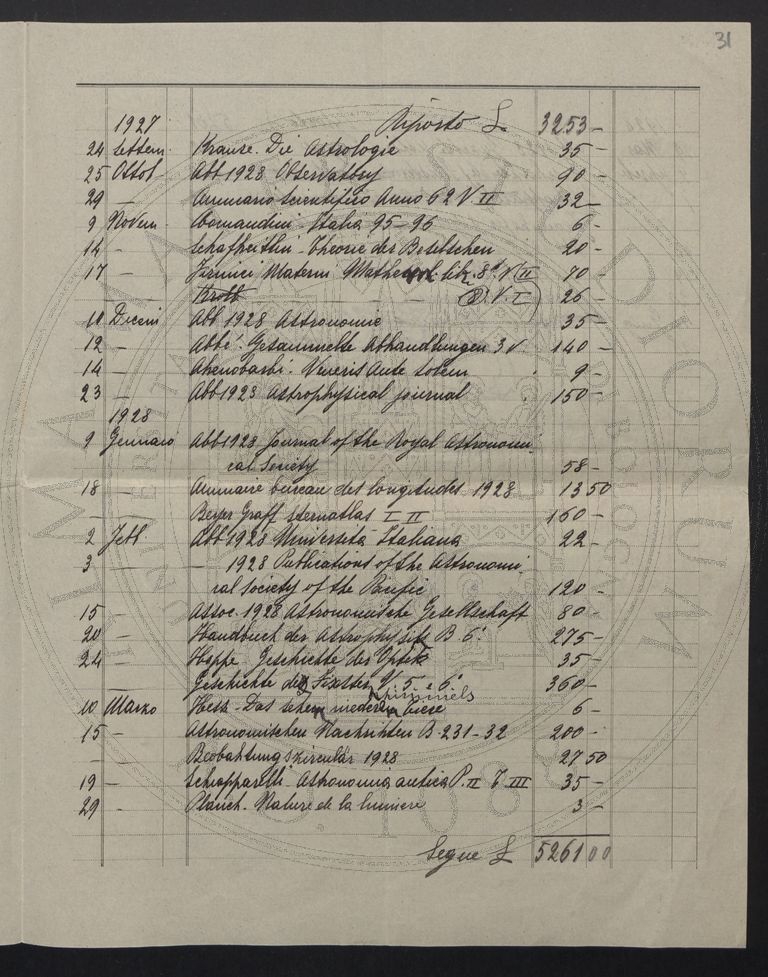 31
1927 Riporto L. 3253 -
24 Settem. Krause. Die Astrologie 35 -
25 Ottob. Abb 1928 Observatory 90 -
29 - Annuario Scientifico Anno 62 V II 32 -
9 Novem. Comandini - Italia 95-96 6 -
14 - Schafheitlin - Theorie der Besselschen 20 -
17 - Firmici Materni Mathe lib. 8° V II 70 -
Kroll - - - (8) V. I 26 -
10 Decem Abb 1928 Astronomie 35 -
12 - Abbé. Gesammelte Abhandlungen 3 V. 140 -
14 - Ahenobarbi. Veneris Ante Solem 9 -
23 - Abb 1928 Astrophysical journal 150 -
1928
9 Gennaio Abb 1928 Journal of the Royal Astronomi-
cal Society 58 -
18 - Annuaire bureau des longitudes 1928 13 50
- - Beyer Graff Sternatlas I II 160 -
2 Febb. Abb 1928 Università Italiana 22 -
3 - - 1928 Publications of the Astronomi-
cal Society of the Pacific 120 -
15 - Assoc. 1928 Astronomische Gesellschaft 80 -
20 - Handbuch der Astrophysik B 6° 275 -
24 - Hoppe. Geschichte der Optik 35 -
Geschichte des Fixstern V. 5 e 6° 360 -
10 Marzo Hess - Das sehen niederen 6 -
15 - Astronomischen Nachrichten B 231-32 200 -
- - Beobahtungszirculär 1928 27 50
19 - Schiapparelli - Astronomia antica P. II T. III 35 -
29 - Planck. Nature de la lumiere 3 -
Segue L 5261 00